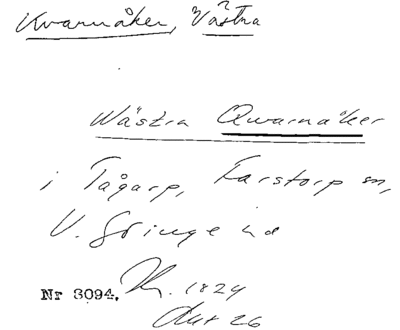 Kvarnåker, Västra
Wästra Qwarnåker
i Tågarp, Farstorp sn,
V. Göinge hd
Nr 3094. 1824
Akt 26